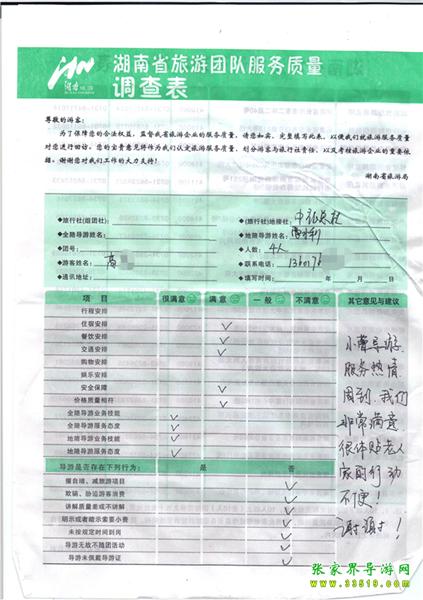 湖南省旅游团队服务质量
调查表
尊敬的游客:
为了保障您的合法权益,监督我省旅游企业的服务质量,请您如实、完整填写此表,以便我们就旅游服务质量
对您进行回访。您的宝贵意见将作为我们认定旅游服务质量、划分游客与旅行社责任,以及考核旅游企业的重要依
据。谢谢您对我们工作的大力支持!
湖南省旅游局
◆旅行社(组团社): ◆(旅行社)地接社:
◆全陪导游姓名: ◆地陪导游姓名:
◆团号: ◆人数: 4人
◆游客姓名: ◆联系电话:
◆通讯地址: ◆填写时间: 年 月 日
项 目 很满意 满意 一般 不满意 其它意见与建议
行程安排
住宿安排 ✓
餐饮安排 ✓
交通安排 ✓
购物安排
娱乐安排
安全保障 ✓
价格质量相符 ✓
全陪导游业务技能 ✓
全陪导游服务态度 ✓
地陪导游业务技能 ✓
地陪导游服务态度 ✓
导游是否存在下列行为: 是 否
擅自增、减旅游项目 ✓
欺骗、胁迫游客消费 ✓
讲解质量差或不讲解 ✓
明示或者暗示索要小费 ✓
未按规定时间到岗 ✓
导游无故不随团活动 ✓
导游未佩戴导游证 ✓
小曹导游
服务热情
周到.我们
非常满意
很体贴老人
家因行动
不便!
谢谢!
张家界导游网
www.33519.com